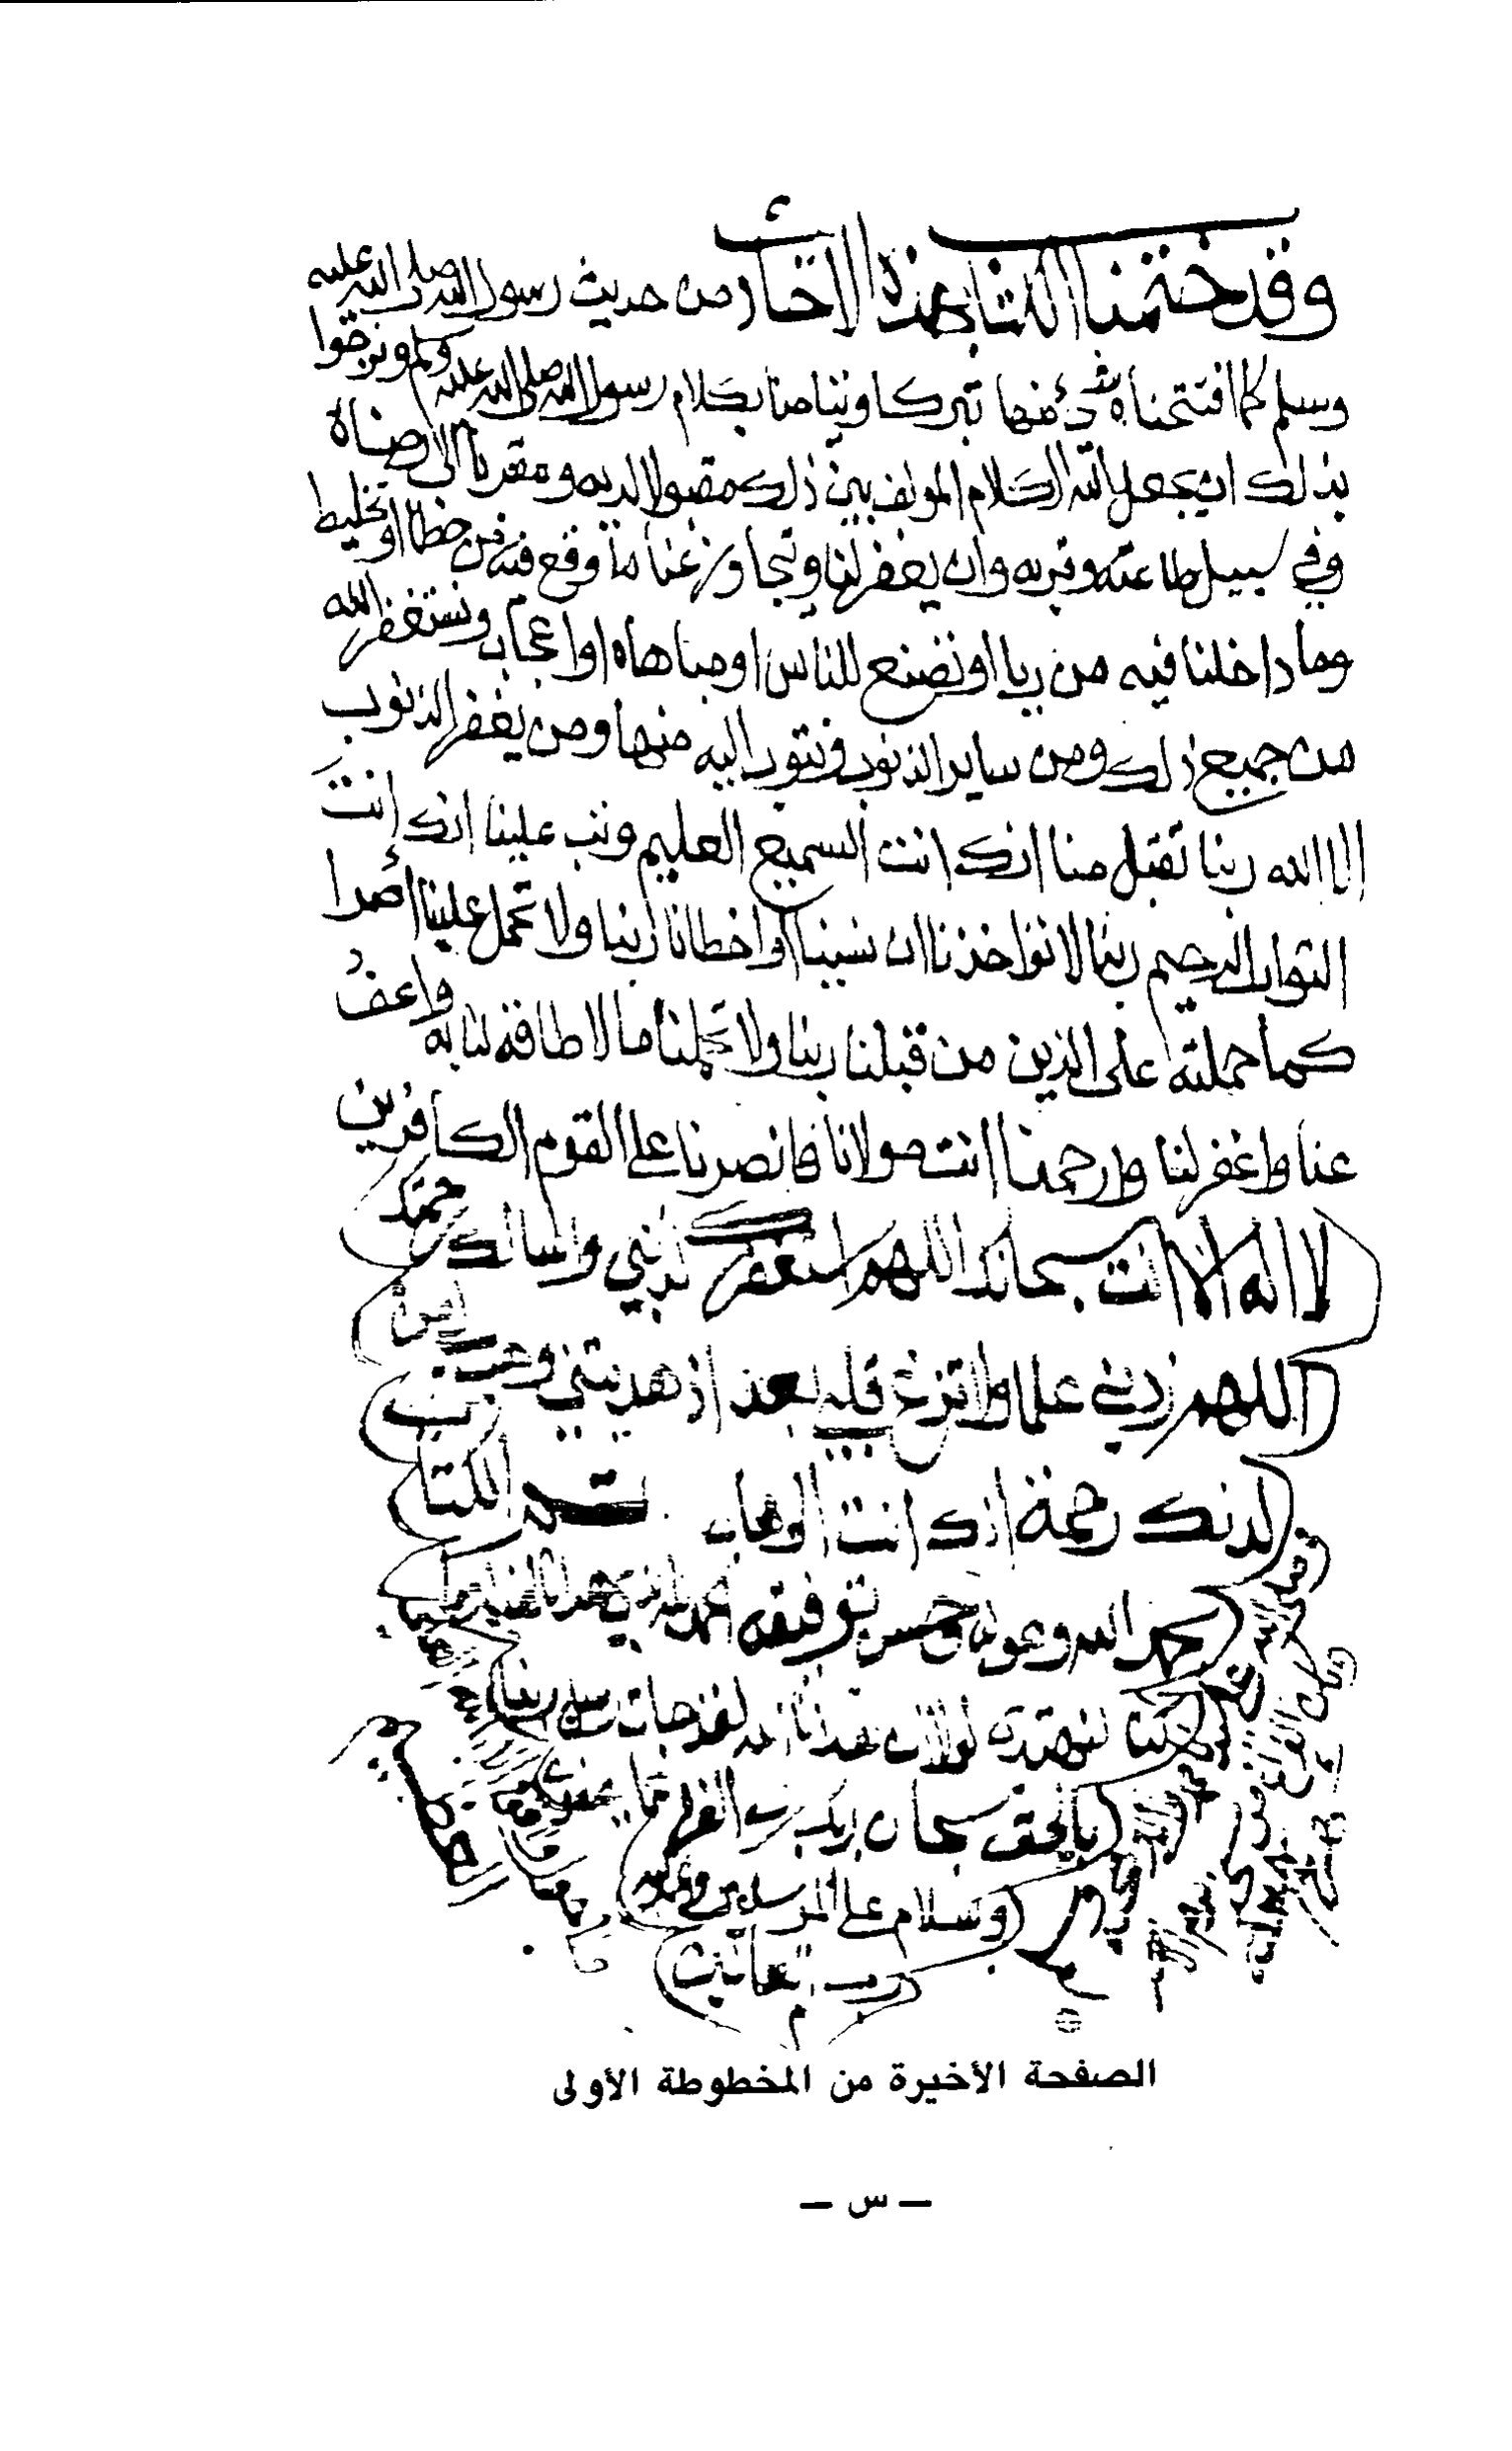 وقد ختمنا الكتاب بهذه الاخبار من حديث رسول الله صلى الله عليه
وسلم كما افتتحناه بشيء منها تبركا وتيامنا بكلام رسول الله صلى الله عليه وسلم ونرجوا
بذلك ان يجعل الله الكلام المولف بين ذلك مقبولا لديه ومقربا الى رضاه
وفي سبيل طاعته وقربه وان يغفر لنا ويتجاوز عنا ما وقع فيه من خطا او تخليط
وما داخلنا فيه من ريا او تصنع للناس او مباهاه او اعجاب ونستغفر الله
من جميع ذلك ومن ساير الذنوب ونتوب اليه منها ومن يغفر الذنوب
الا الله ربنا تقبل منا انك انت السميع العليم وتب علينا انك انت
التواب الرحيم ربنا لا تواخذنا ان نسينا او اخطانا ربنا ولا تحمل علينا اصرا
كما حملته على الذين من قبلنا ربنا ولا تحملنا ما لا طاقة لنا به واعف
عنا واغفر لنا وارحمنا انت مولانا فانصرنا على القوم الكافرين
لا اله الا انت سبحانك اللهم استغفرك لذنبي واسالك رحمتك
اللهم زدني علما ولا تزغ قلبي بعد اذ هديتني وهب لي من
لدنك رحمة انك انت الوهاب تم الكتاب
بحمد الله وعونه وحسن توفيقه الحمد لله الذي هدانا لهذا وما
كنا لنهتدي لولا ان هدانا الله لقد جات رسل ربنا
بالحق سبحان ربك رب العزة عما يصفون
وسلام على المرسلين والحمد لله
رب العالمين
م
الصفحة الأخيرة من المخطوطة الأولى
— س —